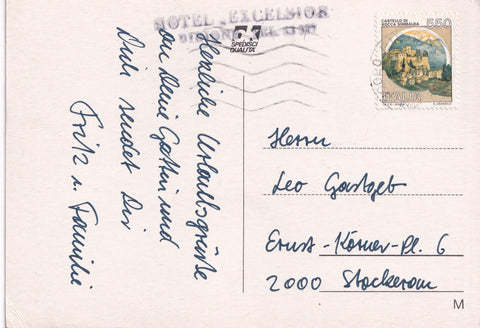 HOTEL "EXCELSIOR
OK
SPEDISCI
QUALITÀ
CASTELLO DI
ROCCA SINIBALDA
550
ITALIA
Herzliche Urlaubsgrüße
an Deine Gattin und
Dich sendet Dir
Fritz u. Familie
Herrn
Leo Gastgeb
Ernst-Körner-Pl. 6
2000 Stockerau
M